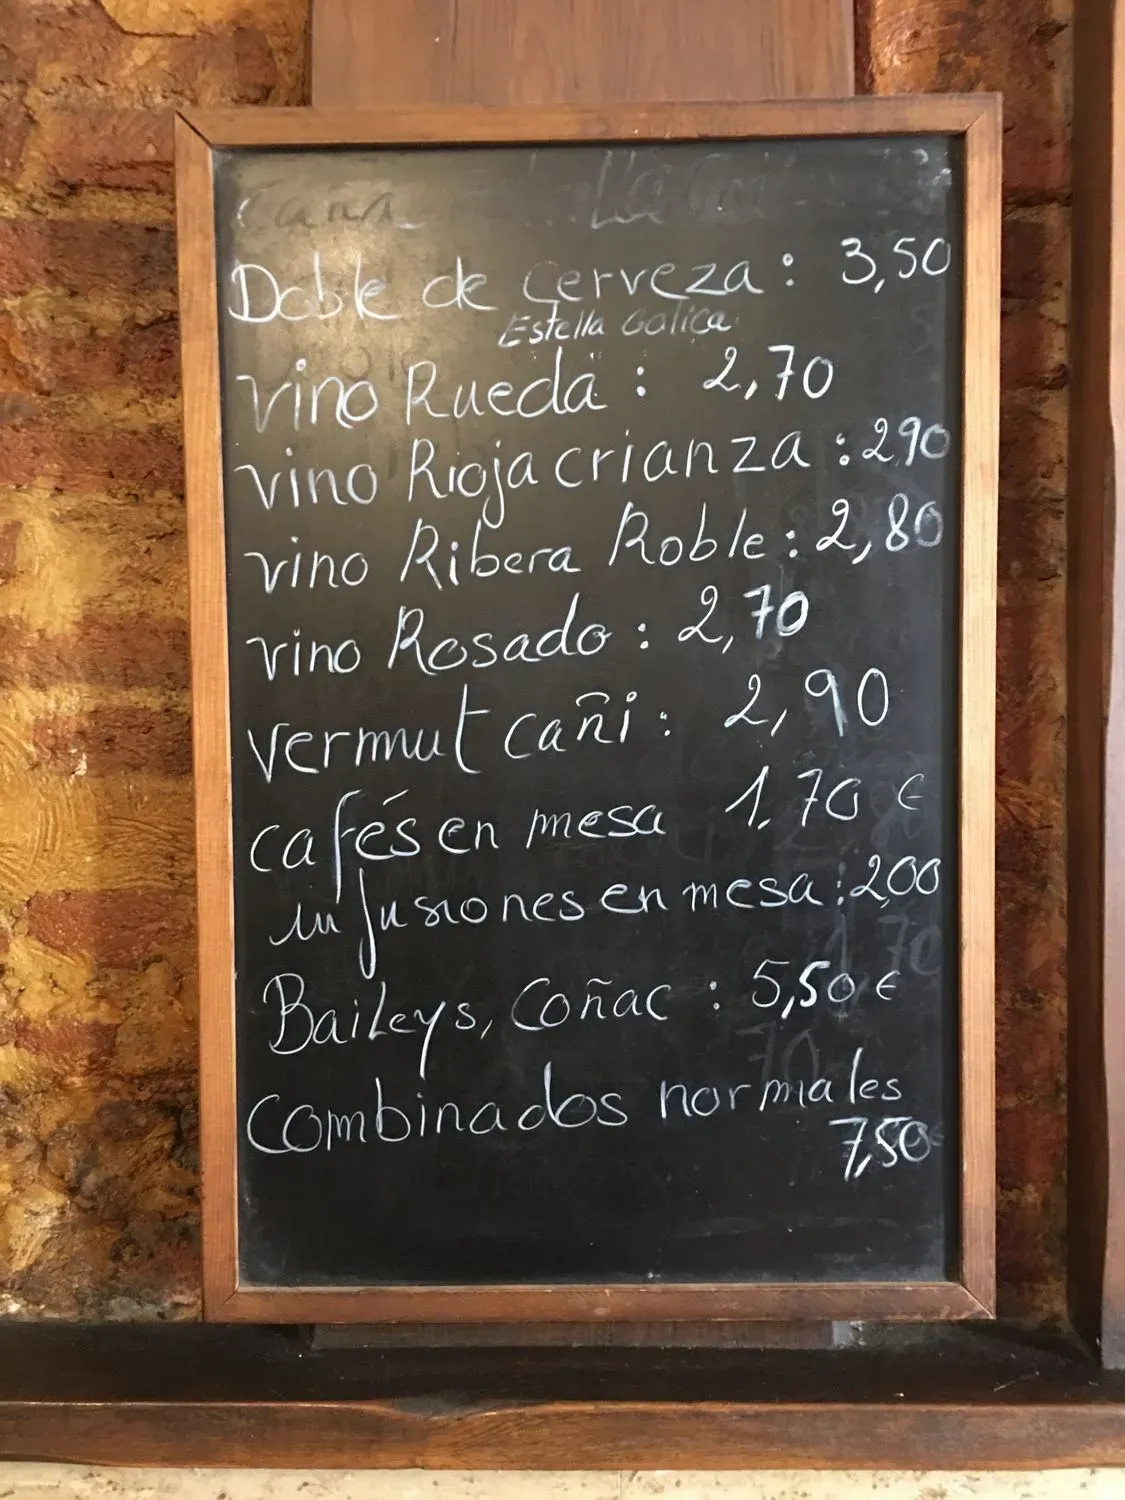 Caña
Doble de Cerveza: 3,50
Estella Galica
vino Rueda: 2,70
vino Rioja crianza: 2,90
vino Ribera Roble: 2,80
vino Rosado: 2,70
Vermut cañi: 2,90
cafés en mesa 1,70 €
infusiones en mesa: 2,00
Baileys, Coñac: 5,50 €
Combinados normales
7,50